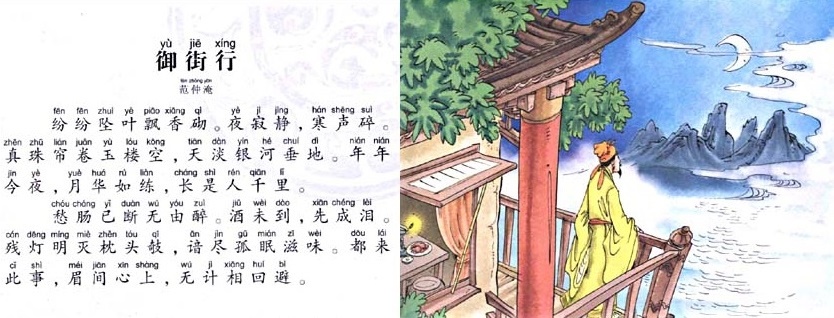 yù jiē xíng
御街行
fàn zhòng yān
范仲淹
fēn fēn zhuì yè piāo xiāng qì yè jì jìng hán shēng suì
纷纷坠叶飘香砌。夜寂静，寒声碎。
zhēn zhū lián juǎn yù lóu kōng tiān dàn yín hé chuí dì nián nián
真珠帘卷玉楼空，天淡银河垂地。年年
jīn yè yuè huá rú liàn cháng shì rén qiān lǐ
今夜，月华如练，长是人千里。
chóu cháng yǐ duàn wú yóu zuì jiǔ wèi dào xiān chéng lèi
愁肠已断无由醉。酒未到，先成泪。
cán dēng míng miè zhěn tóu qī ān jìn gū mián zī wèi dōu lái
残灯明灭枕头攲，谙尽孤眠滋味。都来
cǐ shì méi jiān xīn shàng wú jì xiāng huí bì
此事，眉间心上，无计相回避。